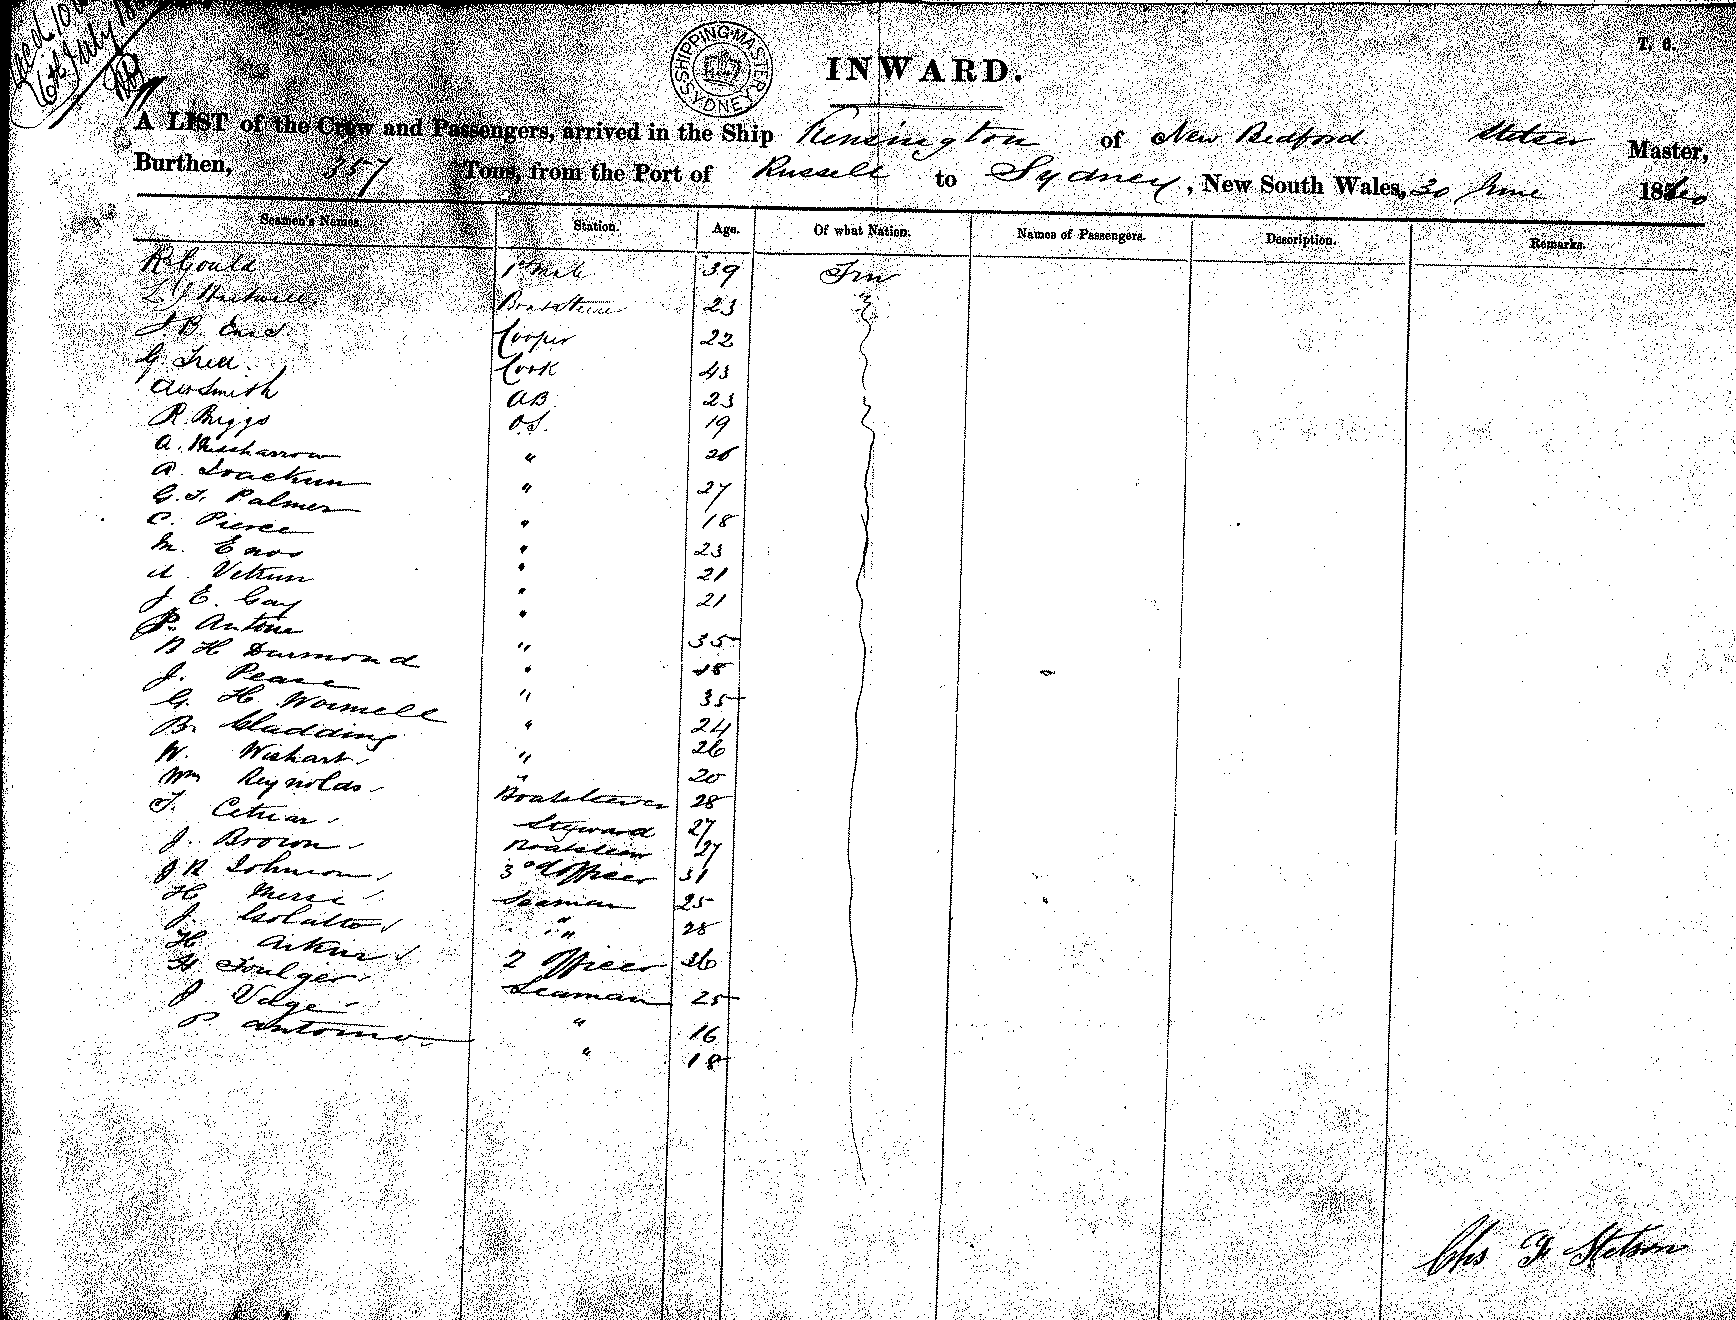 6th July
SHIPPING MASTER SYDNEY
T. 6.
INWARD.
A LIST of the Crew and Passengers, arrived in the Ship Kensington of New Bedford Stetson Master,
Burthen, 357 Tons, from the Port of Russell to Sydney, New South Wales, 30 June 1860
Seamen's Names. Station. Age. Of what Nation. Names of Passengers. Description. Remarks.
R Gould 1st Mate 39
23
J B. Boatsteerer
Cooper 22
G Cook 43
Smith AB 23
R. Briggs O.S. 19
A. " 26
A. Joackim " 27
G. T. Palmer " 18
C. Pierce " 23
M. Enos " 21
Vetrun " 21
J. E. Gay "
P. Antone " 35
B H Durmond " 18
J. Pease " 35
G. H. Wormell " 24
B. Gladding 26
W. Wishart " 20
Wm Reynolds Boatsteerer 28
T. Steward 27
J. Brown Boatsteer 27
J R Johnson 3rd Officer 31
H Seaman 25
J. " 28
H 2 Officer 36
H Foulger Seaman 25
J Vdge " 16
P Antonio " 18
Chs F Stetson